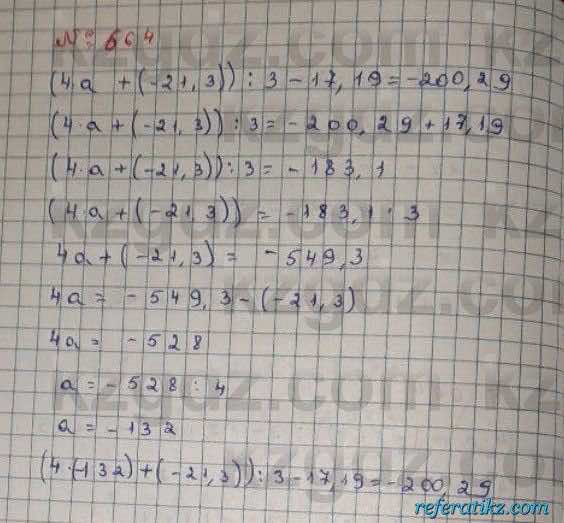 № 664
(4·a + (-21,3)) : 3 - 17,19 = -200,29
(4·a + (-21,3)) : 3 = -200,29 + 17,19
(4·a + (-21,3)) : 3 = -183,1
(4a + (-21,3)) = -183,1 · 3
4a + (-21,3) = -549,3
4a = -549,3 - (-21,3)
4a = -528
a = -528 : 4
a = -132
(4·(-132) + (-21,3)) : 3 - 17,19 = -200,29
referatikz.com